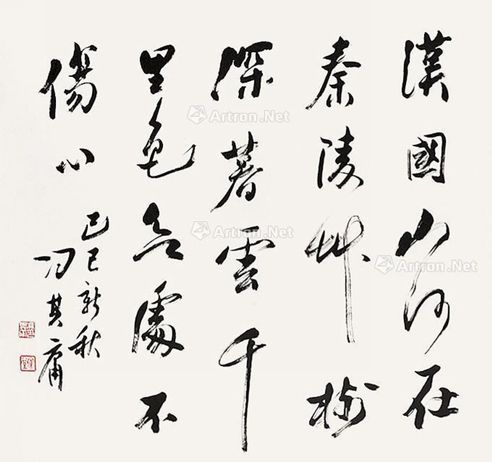 漢國山河在
秦陵艸樹
深暮雲千
里色无處不
傷心
己巳新秋
冯其庸
Artron.Net
Artron.Net
Artron.Net
Artron.Net
Artron.Net